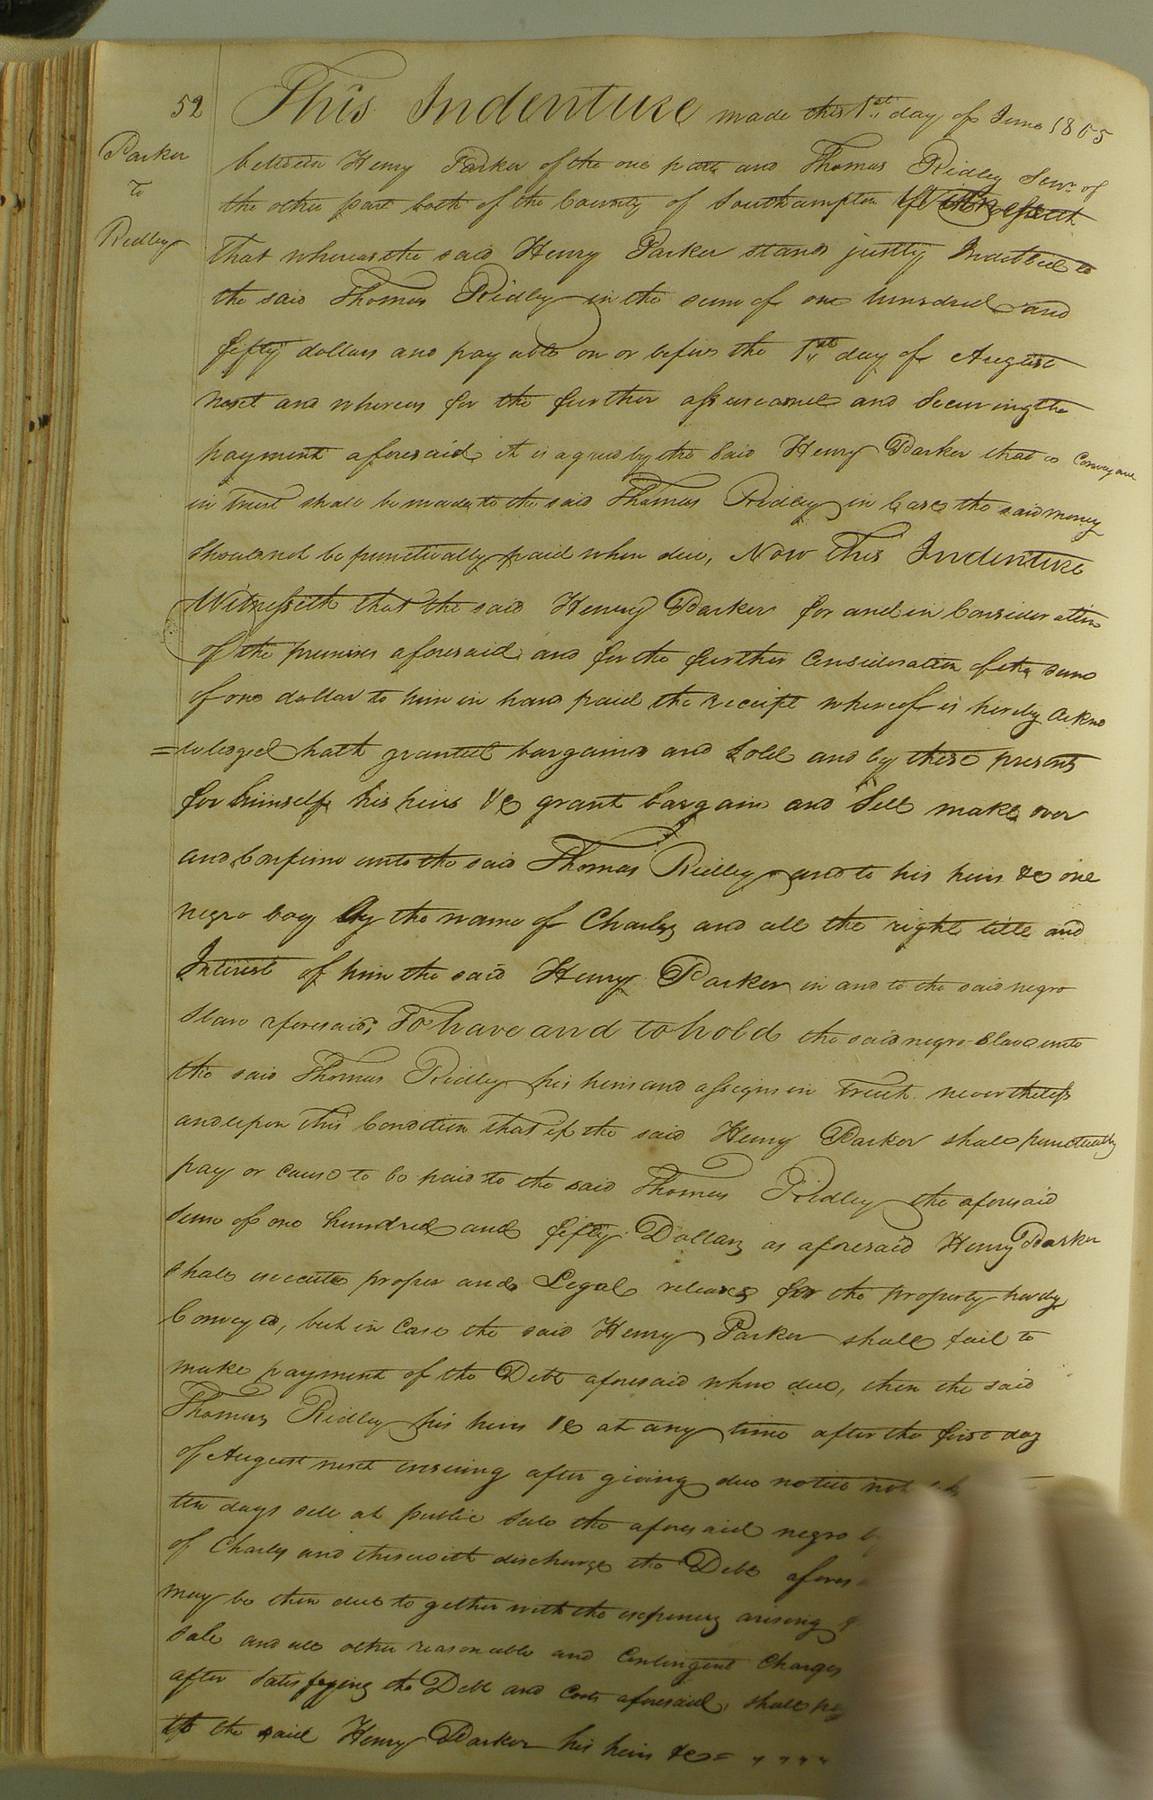 52
This Indenture made this 1st day of June 1805
Parker
to
Ridley
between Henry Parker of the one part and Thomas Ridley Senr. of
the other part both of the County of Southampton
that whereas the said Henry Parker stands justly Indebted to
the said Thomas Ridley in the sum of one hundred and
fifty dollars and payable on or before the 1st day of August
next and whereas for the further assurance and Securing the
payment aforesaid it is agreed by the Said Henry Parker that a Conveyance
in trust shall be made to the said Thomas Ridley in Case the said money
should not be punctually paid when due, Now This Indenture
Witnesseth that the said Henry Parker for and in Consideration
of the premises aforesaid and for the further Consideration of the sum
of one dollar to him in hand paid the receipt whereof is hereby ackno
=wledged hath granted bargained and Sold and by these presents
for himself his heirs &c grant bargain and Sell make over
and Confirm unto the said Thomas Ridley and to his heirs &c one
negro boy by the name of Charles and all the right title and
Interest of him the said Henry Parker in and to the said negro
Slave aforesaid; To have and to hold the said negro Slave unto
the said Thomas Ridley his heirs and assigns in trust nevertheless
and upon this Condition that if the said Henry Parker shall punctually
pay or cause to be paid to the said Thomas Ridley the aforesaid
sum of one hundred and fifty Dollars as aforesaid Henry Parker
shall execute proper and Legal releases for the property hereby
Conveyed, but in Case the said Henry Parker shall fail to
make payment of the Debt aforesaid when due, then the said
Thomas Ridley his heirs &c at any time after the first day
of August next ensuing after giving due notice not
ten days sell at public Sale the aforesaid negro
of Charles and therewith discharge the Debt
may be then due together with the expences arising
sale and all other reasonable and Contingent Charges
after Satisfying the Debt and Costs aforesaid, shall
to the said Henry Parker his heirs &c =